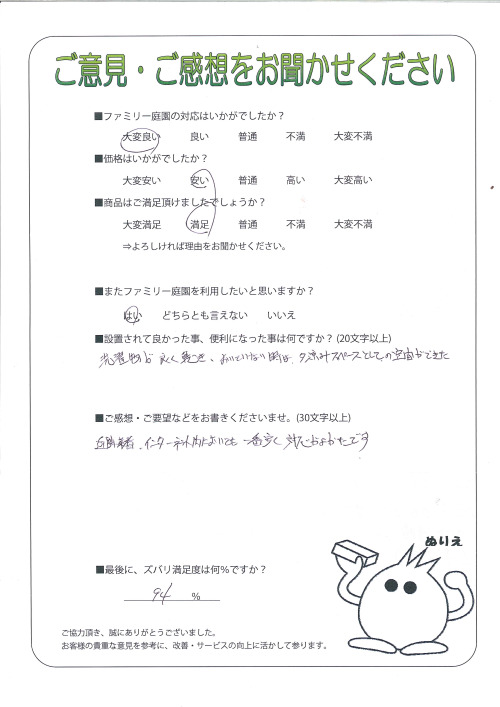 ご意見・ご感想をお聞かせください
■ファミリー庭園の対応はいかがでしたか？
大変良い 良い 普通 不満 大変不満
■価格はいかがでしたか？
大変安い 安い 普通 高い 大変高い
■商品はご満足頂けましたでしょうか？
大変満足 満足 普通 不満 大変不満
⇒よろしければ理由をお聞かせください。
■またファミリー庭園を利用したいと思いますか？
はい どちらとも言えない いいえ
■設置されて良かった事、便利になった事は何ですか？(20文字以上)
洗濯物が良く乾き、 スペースとしての空間ができた
■ご感想・ご要望などをお書きくださいませ。(30文字以上)
インターネット 一番安く対応もよかったです
ぬりえ
■最後に、ズバリ満足度は何％ですか？
94 %
ご協力頂き、誠にありがとうございました。
お客様の貴重な意見を参考に、改善・サービスの向上に活かして参ります。